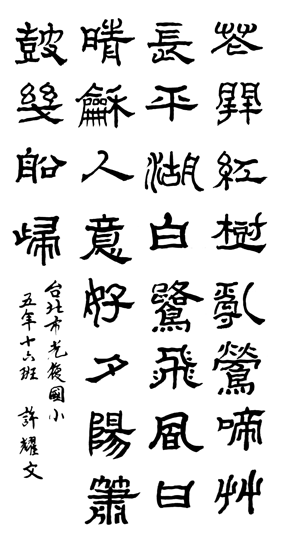 花開紅樹亂鶯啼艸
長平湖白鷺飛風日
晴龢人意好夕陽簫
鼓幾船歸
台北市光復國小
五年十六班 許耀文